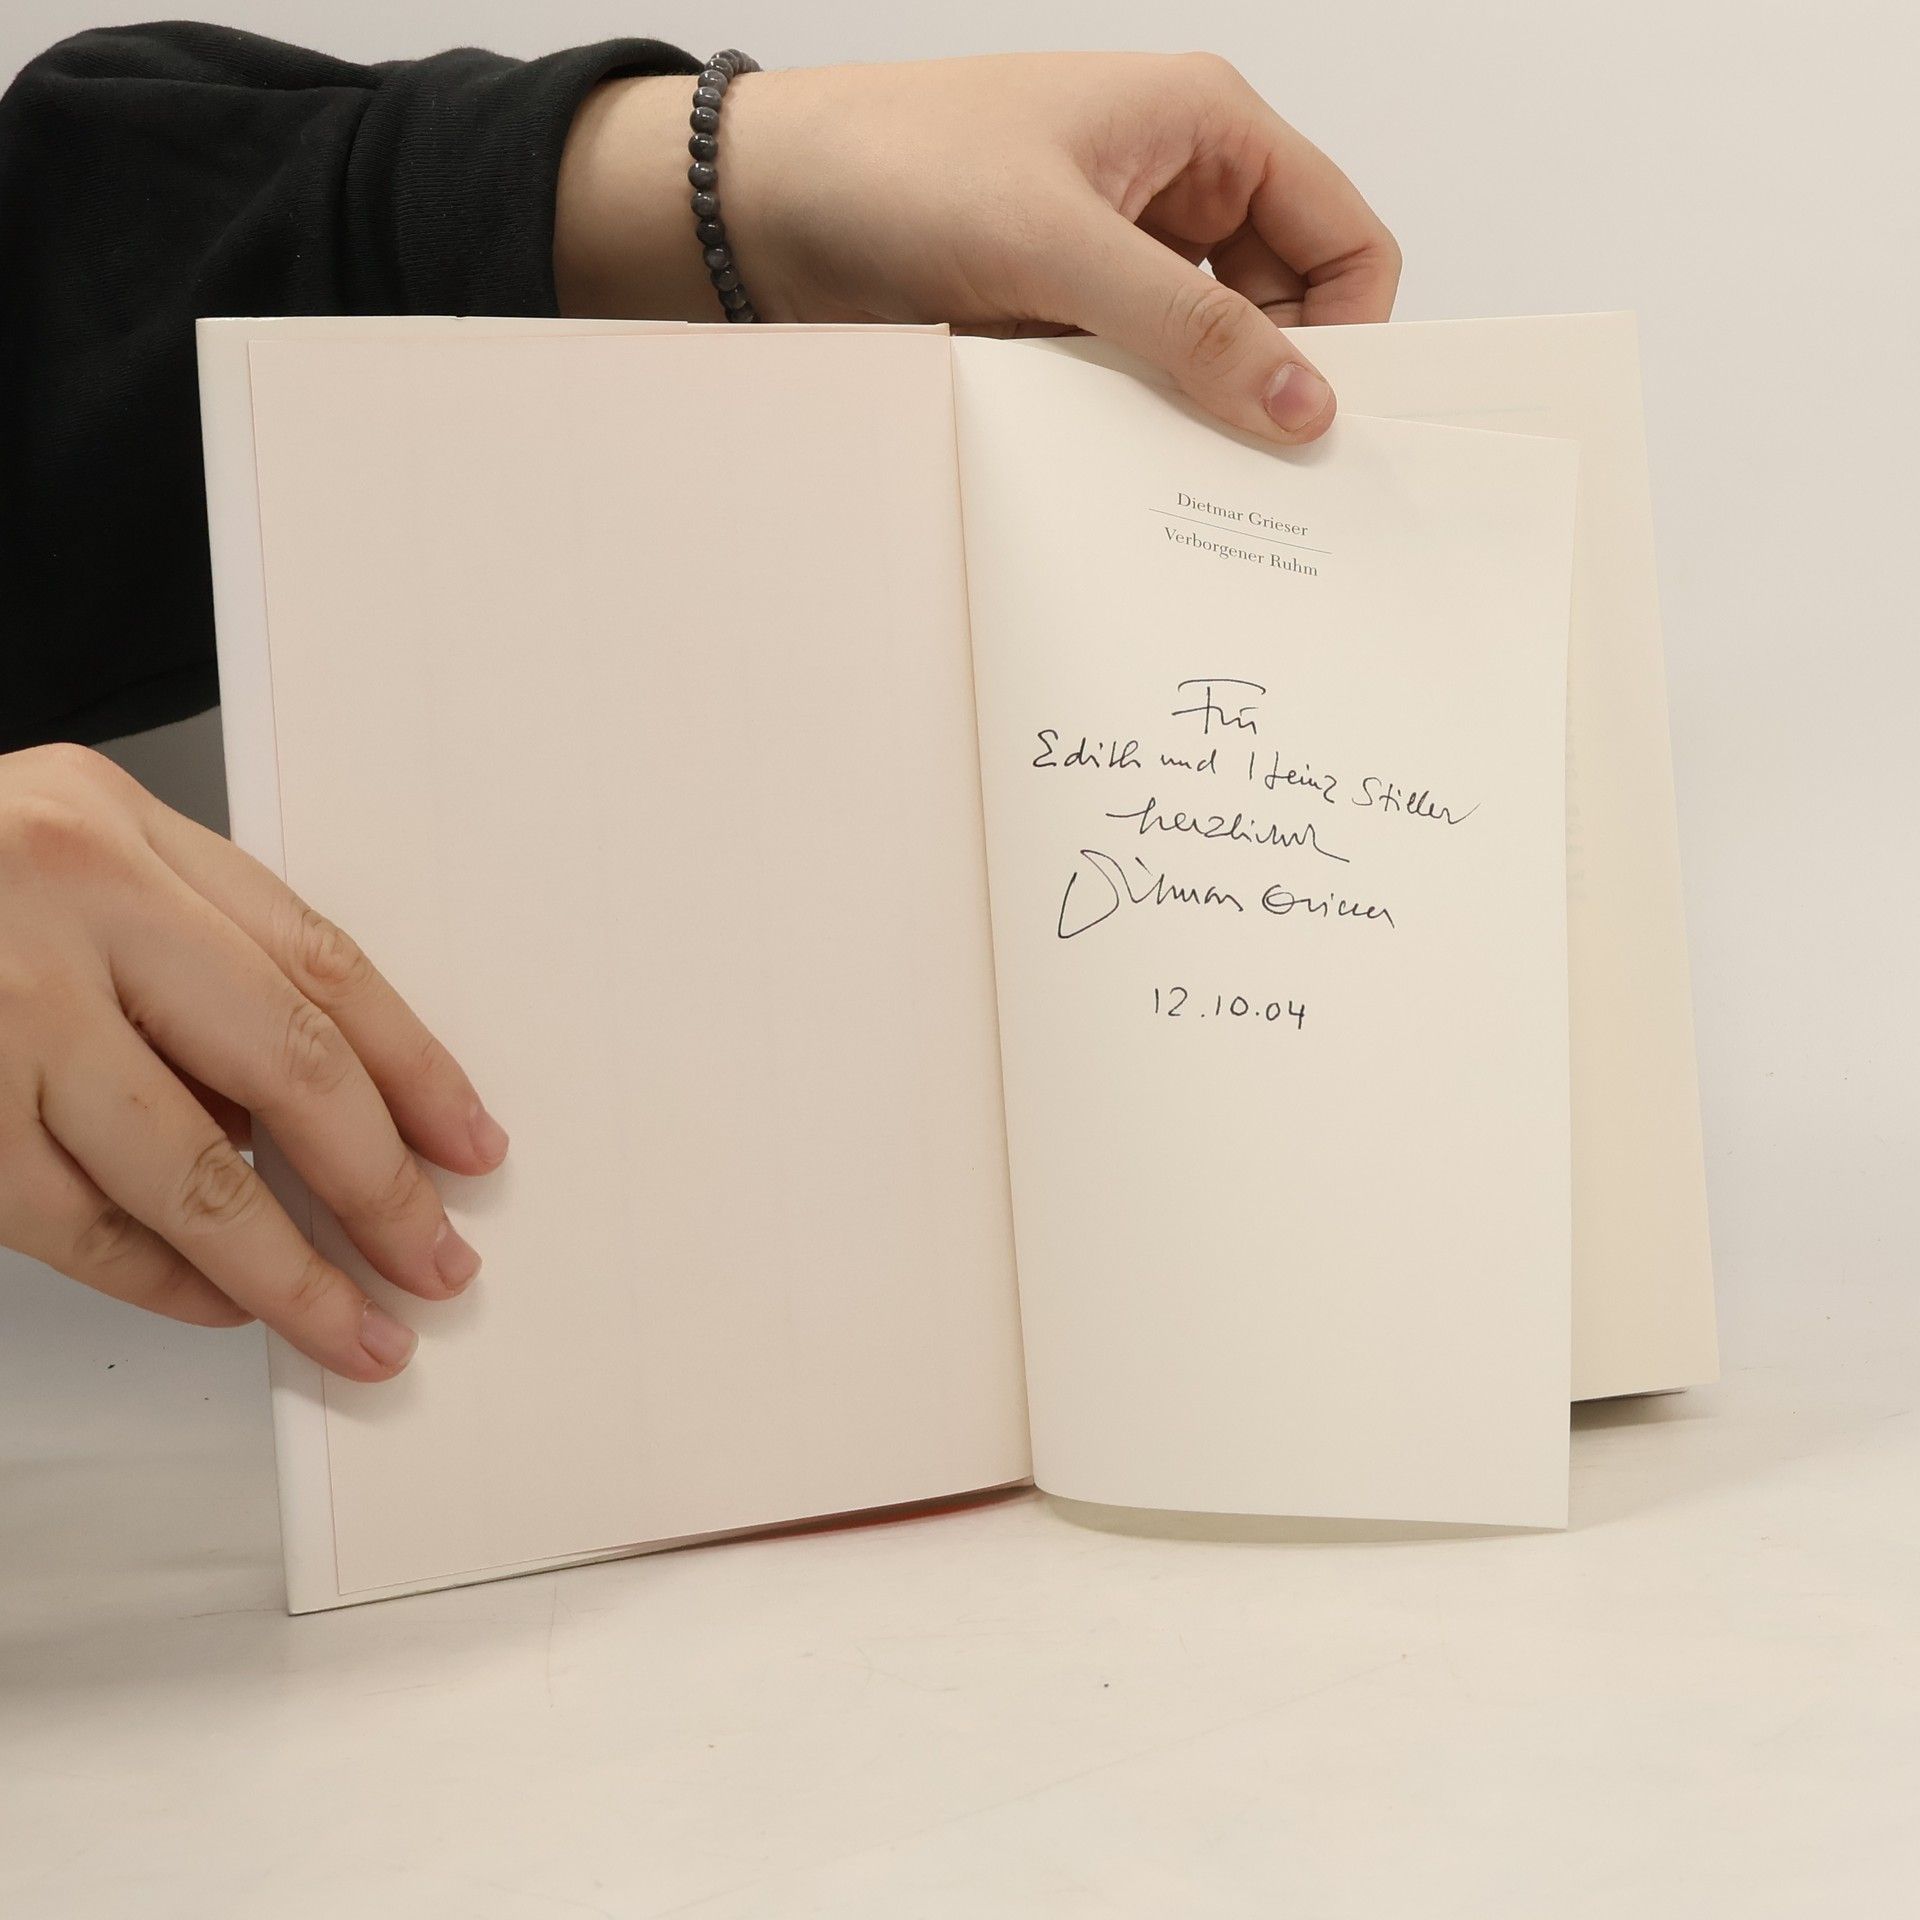 Dietmar Grieser
Verborgener Ruhm
Für
Edith und Heinz Stiller
herzlichst
Dietmar Grieser
12.10.04